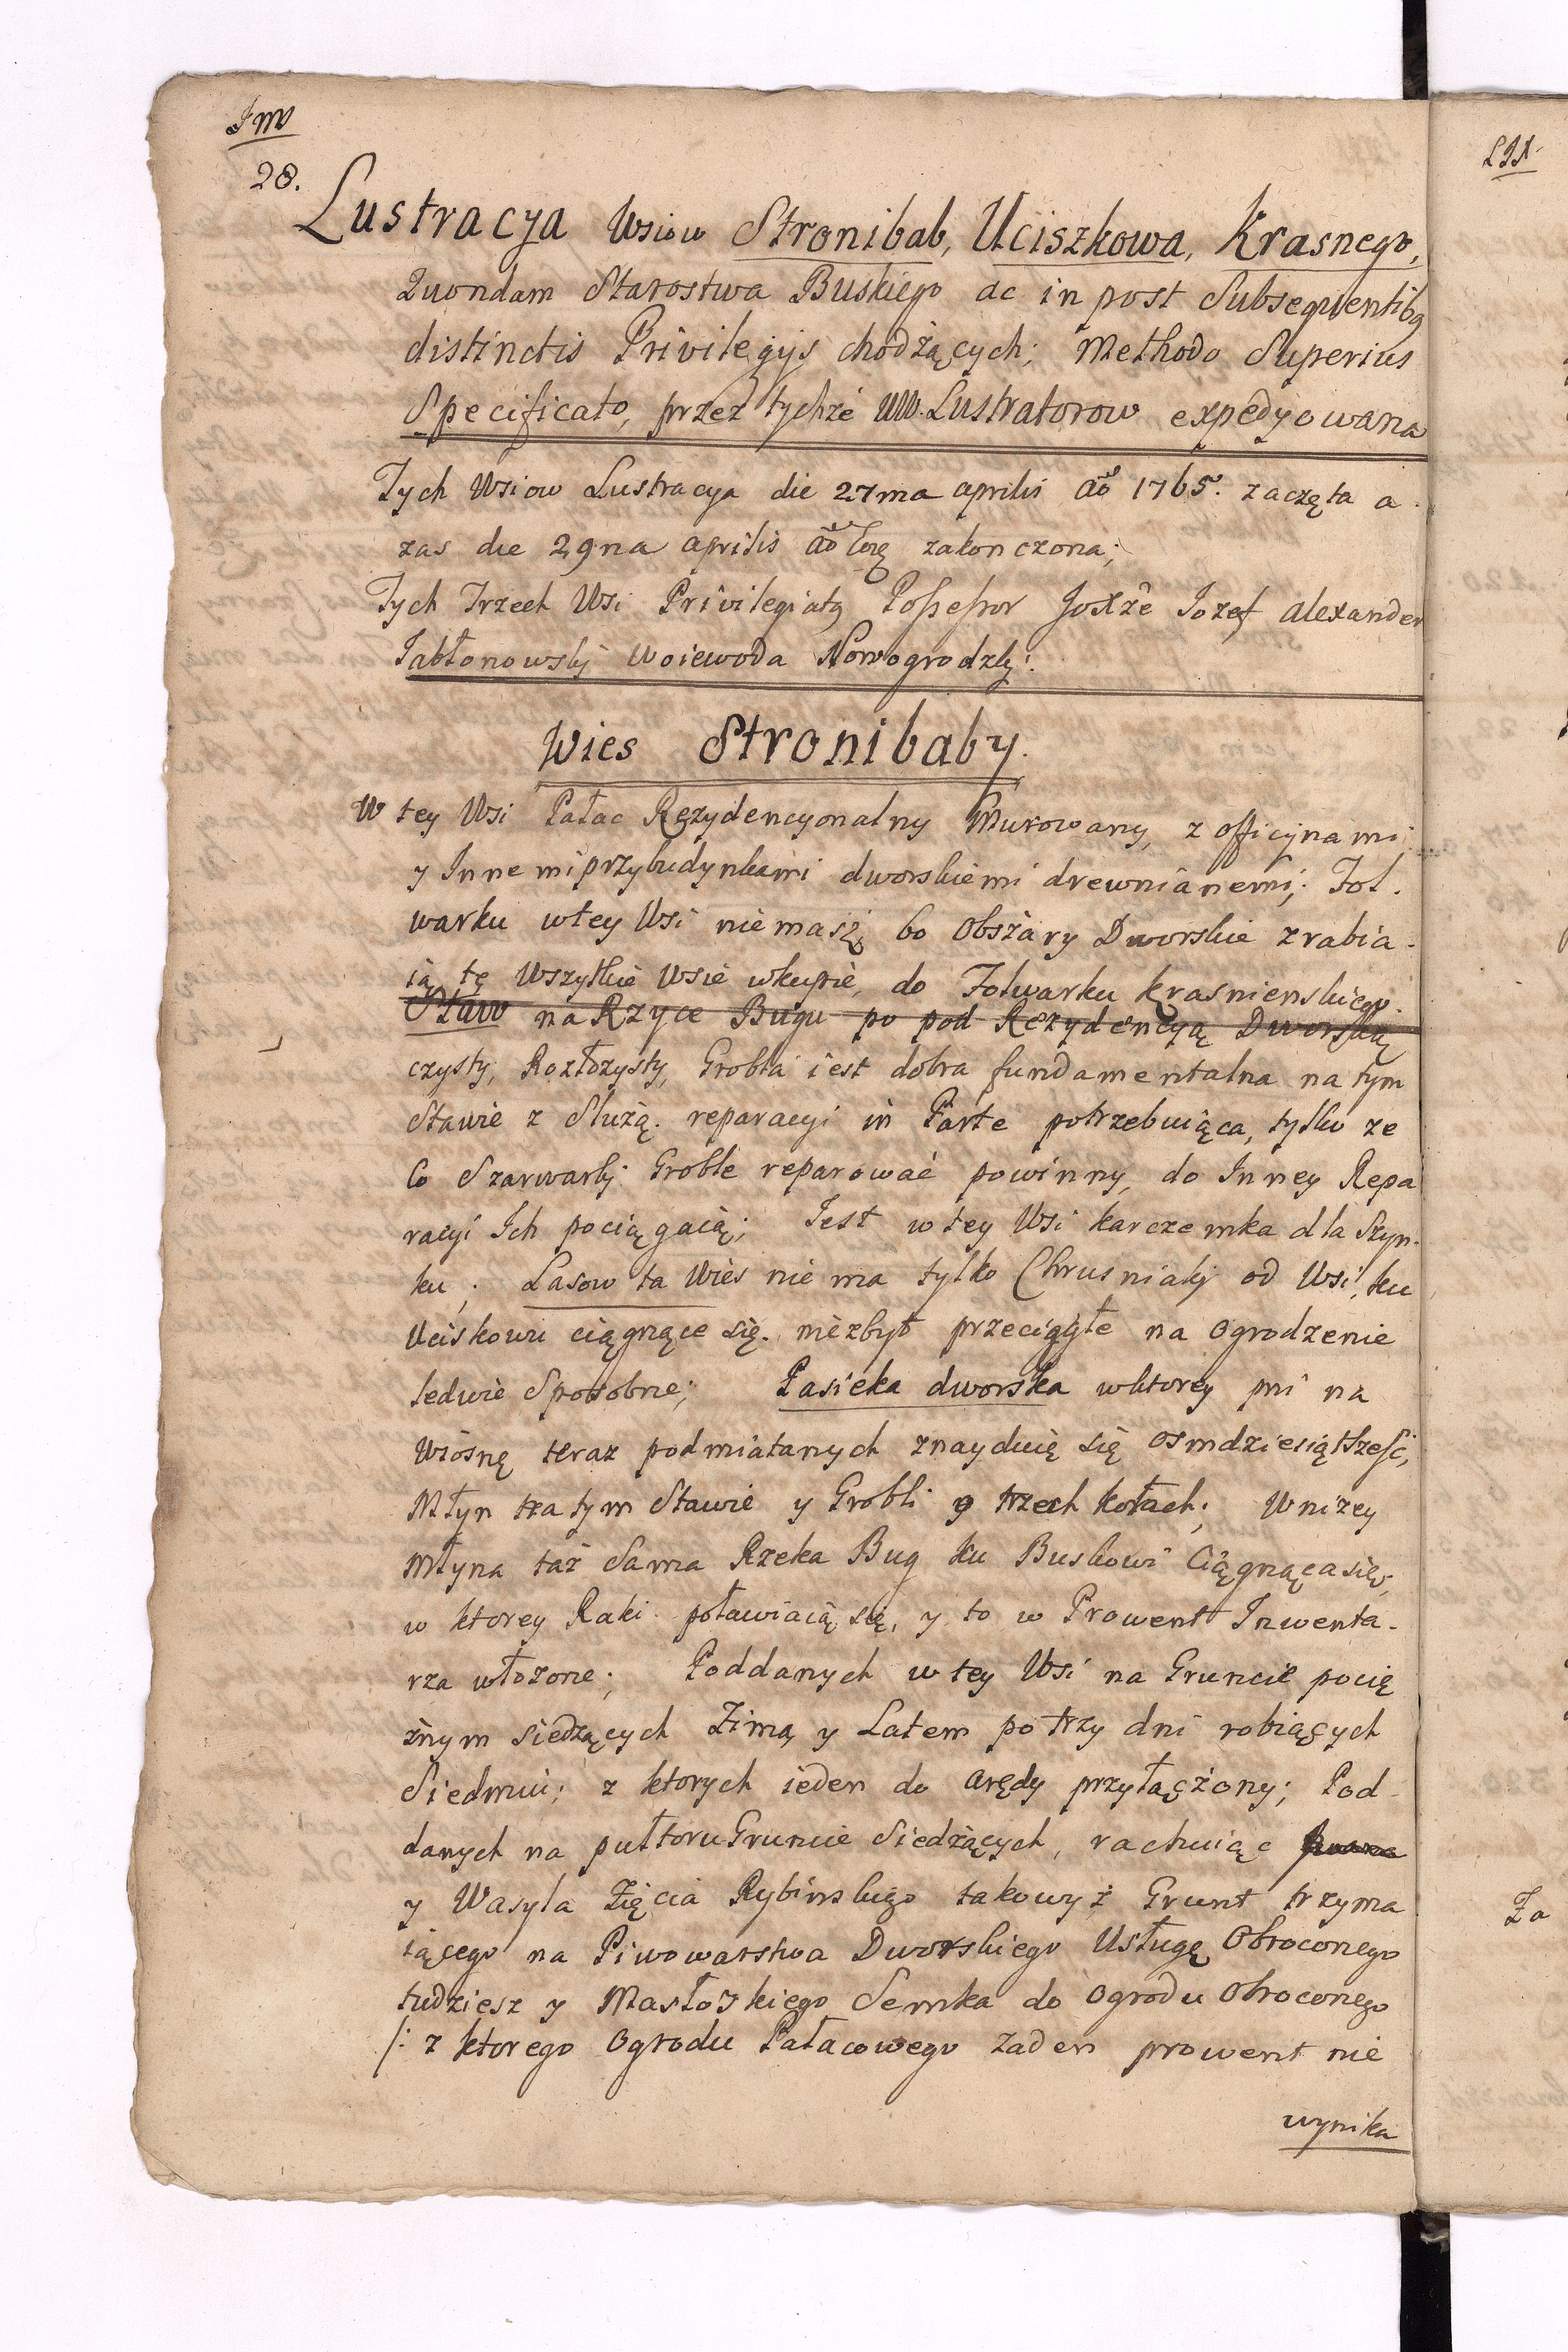 Imo
28.
Lustracya Wsiow Stronibab, Uciszkowa, Krasnego,
Quondam Starostwa Buskiego ac in post Subsequentibq
distinctis Privilegijs chodzących; Methodo Superius
Specificato, przez tychże UW. Lustratorow expedyowana
Tych Wsiow Lustracya die 27ma aprilis aõ 1765. zaczęta a
zas die 29na aprilis aõ zakonczona;
Tych Trzech Wsi Privilegiatq Possessor Jozef Alexander
Jabłonowskj Woiewoda Nowogrodzkj.
Wies Stronibaby.
W tey Wsi Pałac Rezydencyonalny Murowany, z officynami
y Innemi przybudynkami dworskiemi drewnianemi; Fol-
warku wtey Wsi niemasz, bo Obszary Dworskie zrabia-
ią tę Wszytkie Wsie wkupie, do Folwarku Krasnienskiego.
Staw na Rzyce Bugu po pod Rezydencyą Dworską
czysty, Rozłozysty, Grobla iest dobra fundamentalna na tym
Stawie z Sluzą. reparacyi in Parte potrzebuiąca, tylko ze
Co Szarwarkj Groble reparować powinny, do Inney Repa
racyi Ich pociągaią; Jest w tey Wsi karczemka dla Szyn-
ku; Lasow ta Wies nie ma tylko Chrusniakj od Wsi, ku
Uciskowu ciągnące się. niezbyt przeciągłe na ogrodzenie
ledwie Sposobne; Pasieka dworska wktorey pni na
Wiosnę teraz podmiatanych znayduię się osmdziesiątszesc,
Młyn na tym Stawie y Grobli o trzech kołach; Wnizey
Młyna taż Sama Rzeka Bug ku Buskowi Ciągnąca się,
w ktorey Raki poławiaią się, y to w Prowent Inwenta-
rza włozone; Poddanych w tey Wsi na Gruncie pocię
żnym siedzących Zimą y Latem po trzy dni robiących
Siedmiu; z ktorych ieden do arędy przyłączony; Pod-
danych na pułtoru Gruncie Siedzących, rachuiąc
y Wasyla Zięcia Rybinskiego takowyż Grunt trzyma
iącego na Piwowarstwa Dworskiego Usługę Obroconego
tudziesz y Masłoskiego Semka do ogrodu obroconego
/: z ktorego Ogrodu Pałacowego zaden prowent nie
wynika
LIX
Za